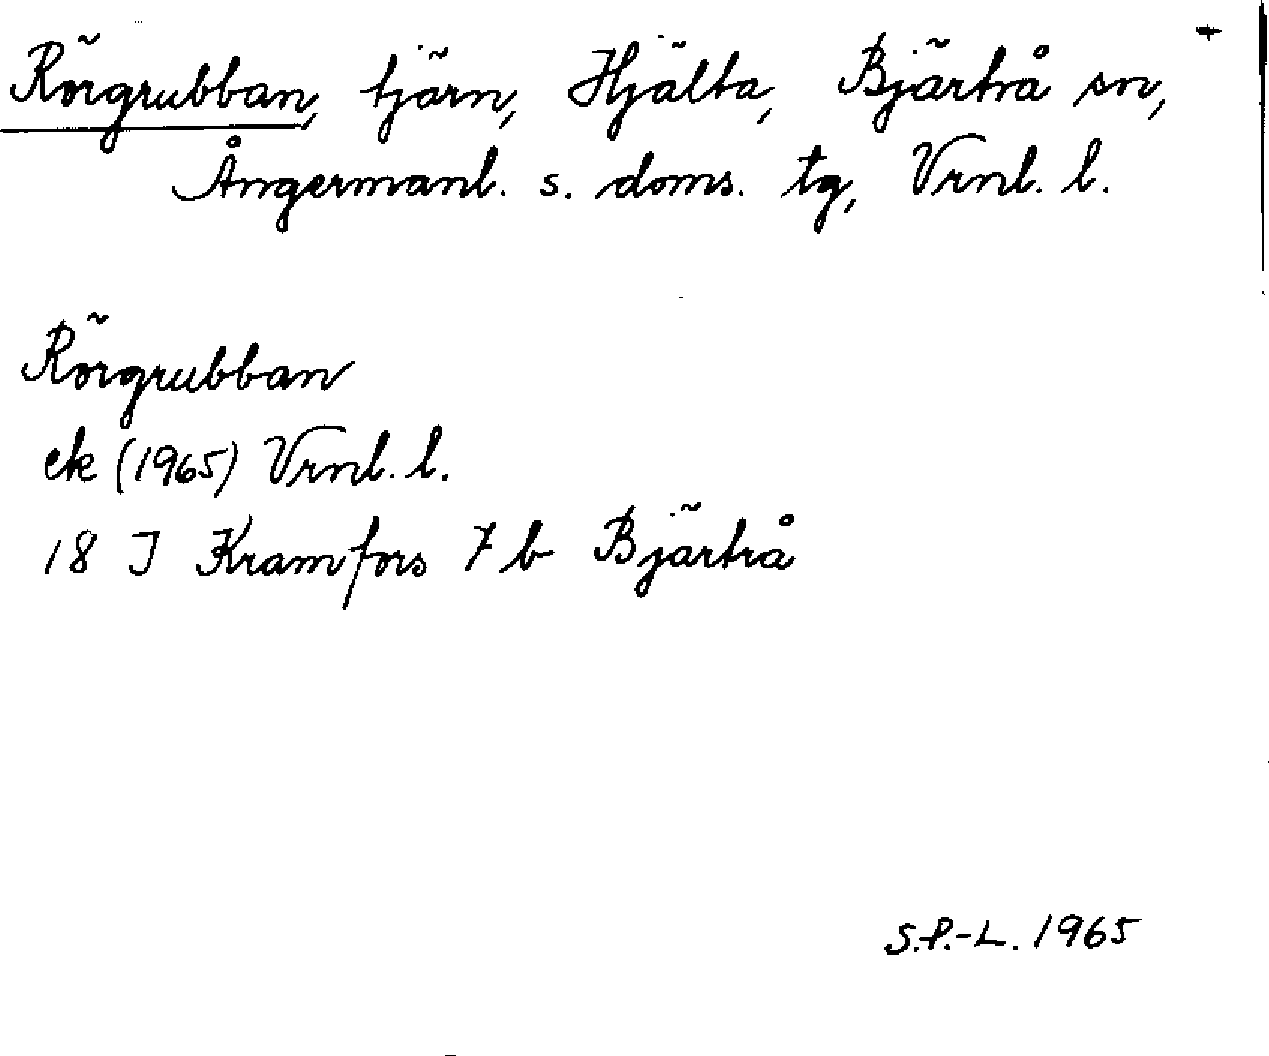 Rörgrubban, tjärn, Hjälta, Bjärtrå sn, +
Ångermanl. s. doms. tg, Vrnl. l.
Rörgrubban
ek (1965) Vrnl. l.
18 I Kramfors 7 b Bjärtrå
S.P.-L. 1965